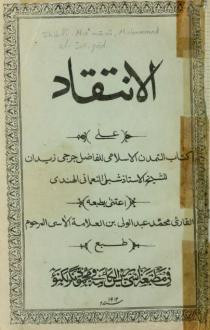 Shibli, Nu'mani, Muhammad
الانتقاد
على
كتاب التمدن الاسلامى للفاضل جرجى زيدان
للشيخ الاستاذ شبلى النعمانى الهندى
اعتنى بطبعه
القارى محمد عبد الولى بن العلامة الآسى المرحوم
طبع